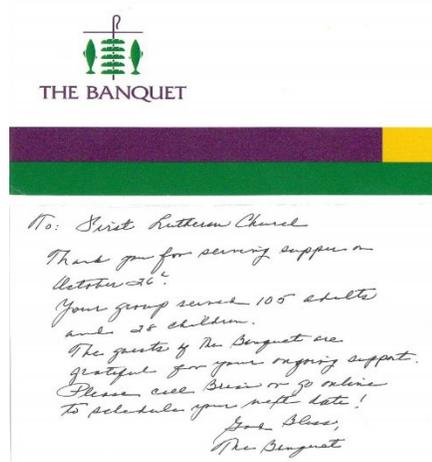 THE BANQUET
To: First Lutheran Church
Thank you for serving supper on
October 26!
Your group served 105 adults
and 28 children.
The guests of The Banquet are
grateful for your ongoing support.
Please call or go online
to schedule your next date!
God Bless,
The Banquet